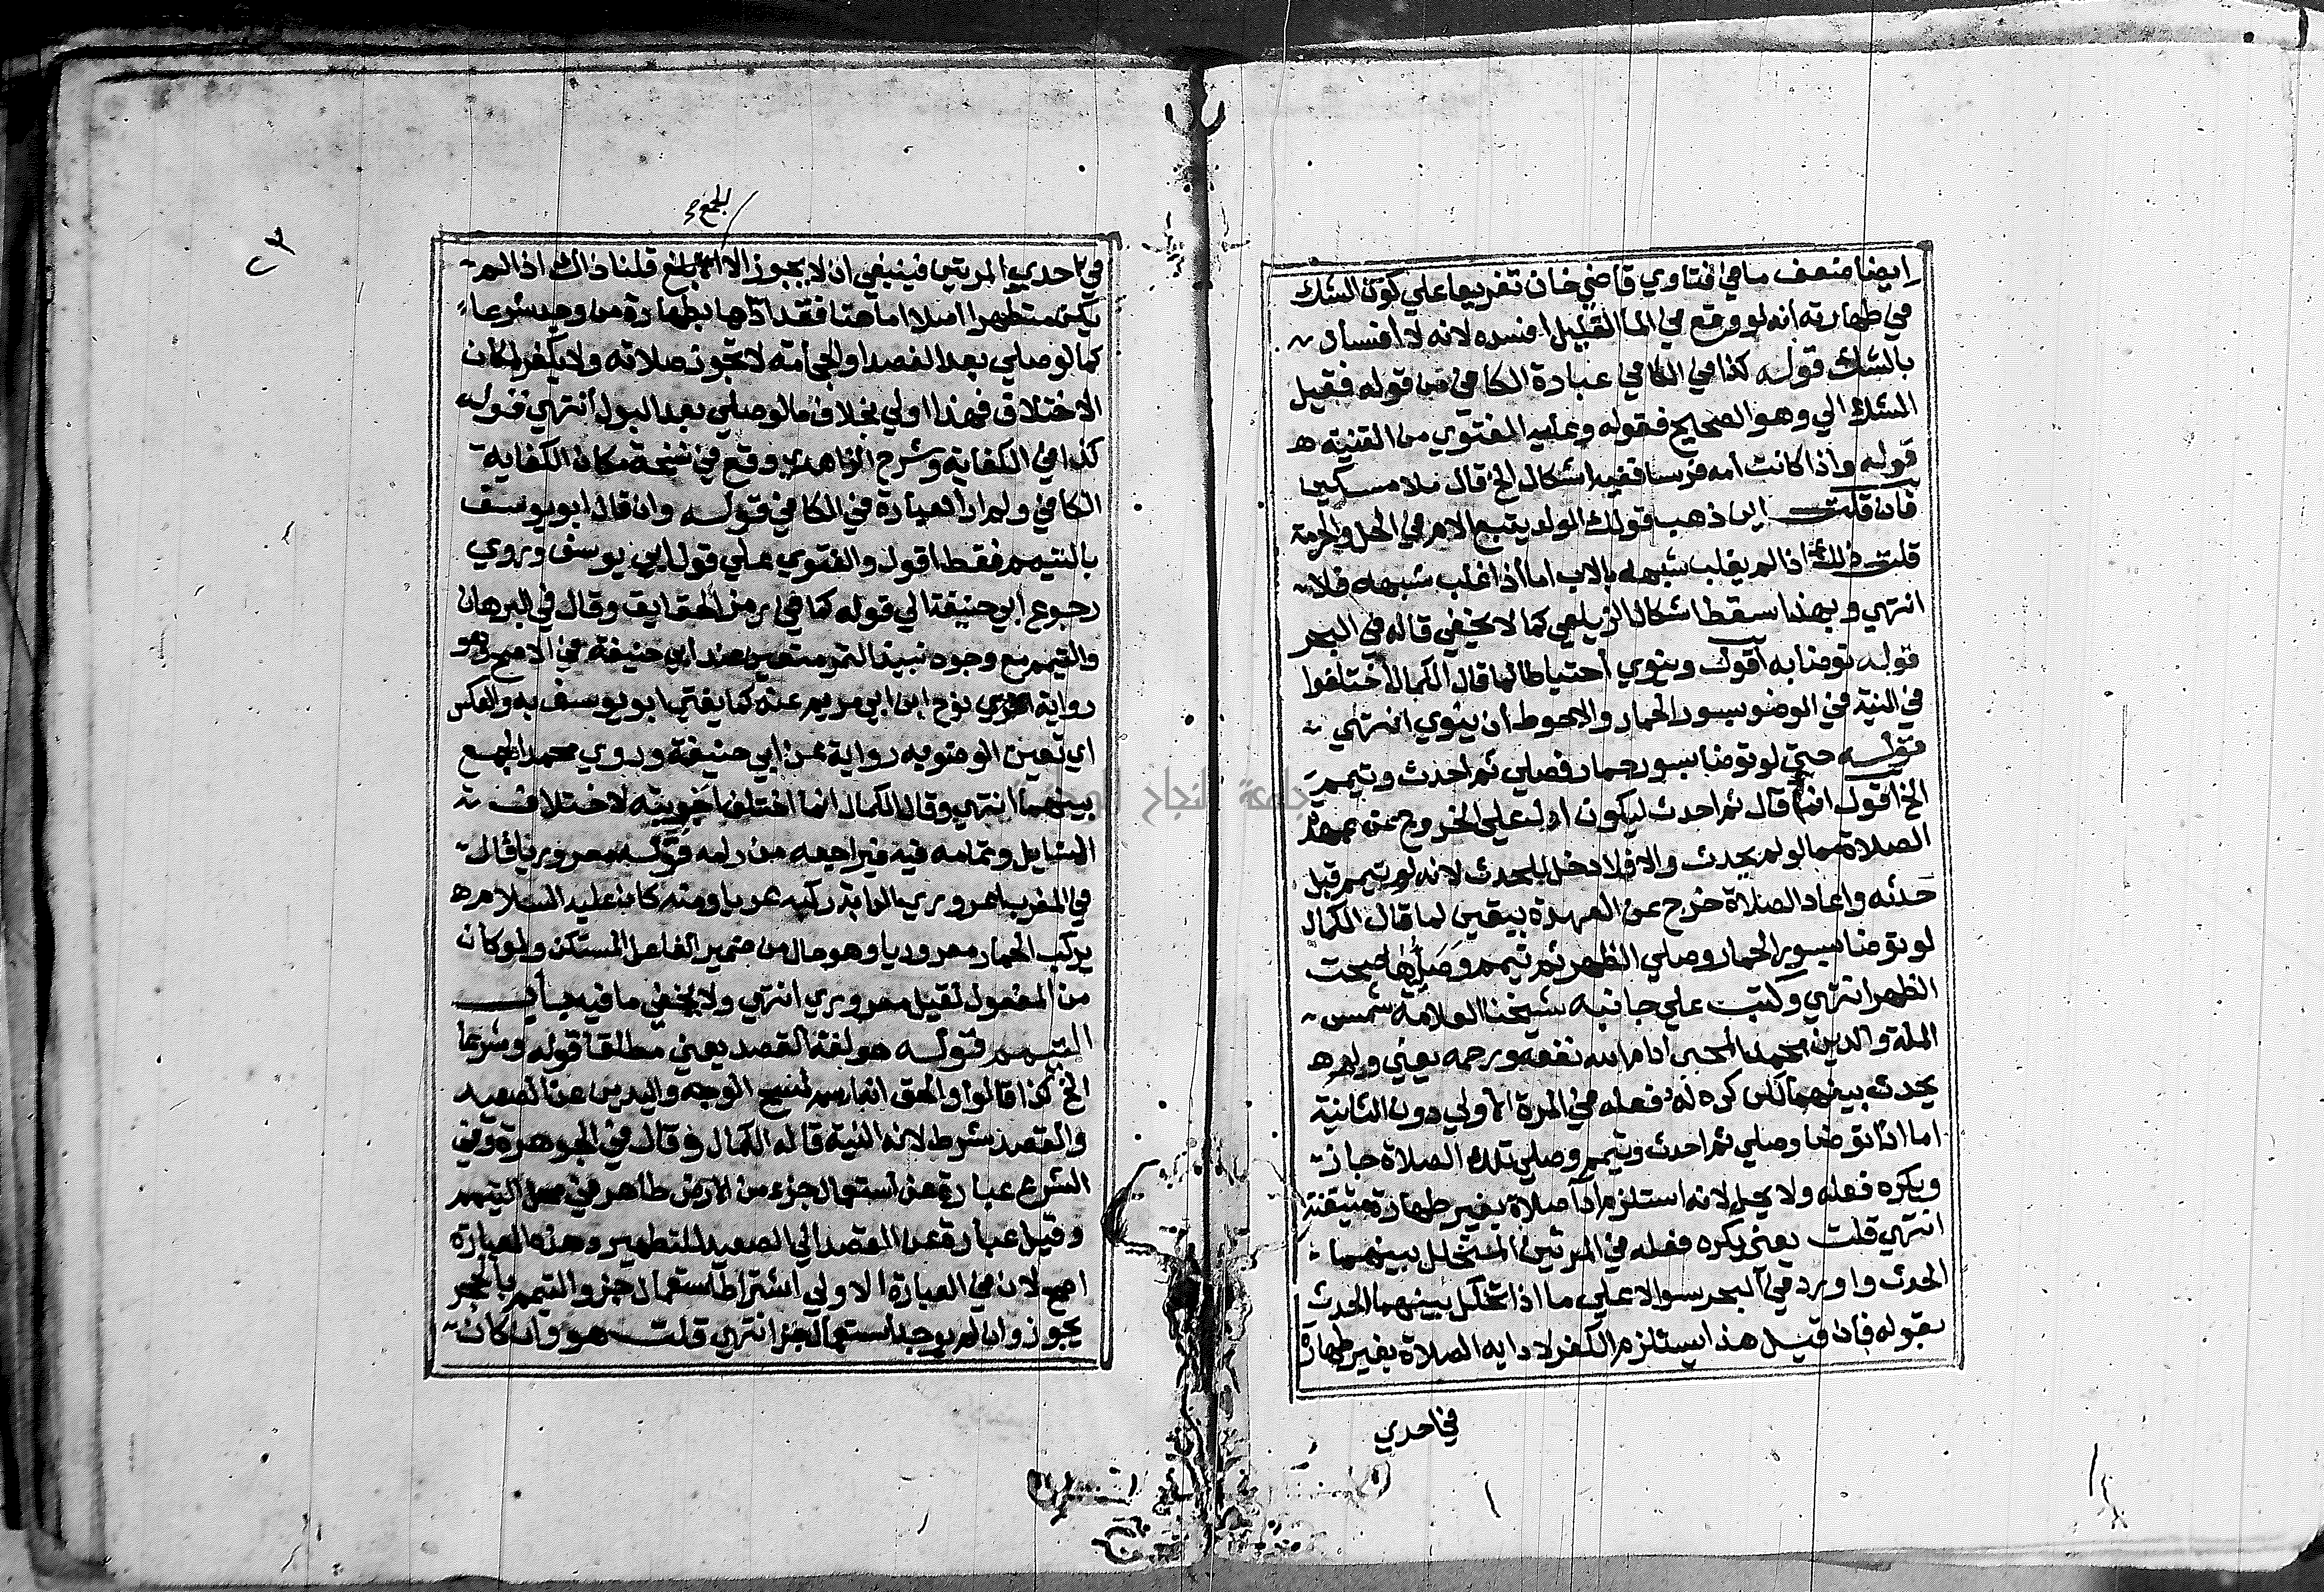 ايضا ضعف ما في فتاوي قاضي خان تفريعا علي كون الشك
في طهارته أنه لو وقع في الما القليل افسده لانه لا افساد
بالشك قوله كذا في الكافي عبارة الكافي من قوله فقيل
الشك الي وهو الصحيح فقوله وعليه الفتوي من القنية ه
قوله واذا كانت امه فرسا ففيه اشكال الخ قال ملا مسكين
فان قلت اين ذهب قولك الولد يتبع الام في الحل والحرمة
قلت ذلك اذا لم يغلب شبهه بالاب اما اذا غلب شبهه فلا
انتهي وبهذا سقط اشكال الزيلعي كما لا يخفي قاله في البحر
قوله توضا به أقول وينوي احتياطا لما قال الكمال اختلفوا
في النية في الوضو بسور الحمار والاحوط ان ينوي انتهي
قوله حتي لو توضا بسور حمار فصلي ثم احدث وتيمم
الخ أقول انما قال ثم احدث ليكون ادل علي الخروج عن عهدة
الصلاة مما لو لم يحدث والا فلا دخل للحدث لانه لو تيمم قبل
حدثه واعاد الصلاة خرج عن العهدة بيقين لما قال الكمال
لو توضا بسور الحمار وصلي الظهر ثم تيمم وصلاها صحت
الظهر انتهي وكتب علي جانبه شيخنا العلامة شمس
الملة والدين محمد المحبي ادام الله نفعه ورحمه يعني ولم ه
يحدث بينهما لكن كره له فعله في المرة الاولي دون الثانية
اما اذا توضا وصلي ثم احدث وتيمم وصلي تلك الصلاة جاز
ويكره فعله ولا يحل لانه استلزم ادآ صلاة بغير طهارة متيقنة
انتهي قلت يعني يكره فعله في المرتين المتخلل بينهما
الحدث واورد في البحر سوالا علي ما اذا تخلل بينهما الحدث
بقوله فان قيل هذا يستلزم الكفر لادايه الصلاة بغير طهارة
في احدي
الجمع صح
في احدي المرتين فينبغي ان لا يجوز الا قلنا ذاك اذا لم
يكن متطهرا اصلا اما هنا فقد اداها بطهارة من وجه شرعا
كما لو صلي بعد الفصد او الحجامة لا تجوز صلاته ولا يكفر لمكان
الاختلاف فهذا اولي بخلاف ما لو صلي بعد البول انتهي قوله
كذا في الكفاية وشرح الزاهدي وقع في نسخة مكان الكفاية
الكافي ولم ار العبارة في الكافي قوله وان قال ابو يوسف
بالتيمم فقط اقول والفتوي علي قول ابي يوسف وروي
رجوع ابي حنيفة الي قوله كما في رمز الحقايق وقال في البرهان
والتيمم مع وجود نبيذ التمر متعين عند ابي حنيفة في الاصح وهو
رواية نوح ابن ابي مريم عنه كما يفتي ابو يوسف به والعكس
اي تعين الوضو به رواية عن ابي حنيفة وروي محمد الجمع
بينهما انتهي وقال الكمال انما اختلف اجوبته لاختلاف
المسايل وتمامه فيه فيراجعه من رامه قوله معروريا قال
في المغرب اعروري الدابة ركبه عريا ومنه كان عليه السلام ه
يركب الحمار معروريا وهو حال من ضمير الفاعل المستكن ولو كان
من المفعول لقيل معروري انتهي ولا يخفي ما فيه باب
التيمم قوله هو لغة القصد يعني مطلقا قوله وشرعا
الخ كذا قالوا والحق انه اسم لمسح الوجه واليدين عن الصعيد
والقصد شرط لانه النية قاله الكمال وقال في الجوهرة وفي
الشرع عبارة عن استعمال جزء من الارض طاهر في محل التيمم
وقيل عبارة عن القصد الي الصعيد للتطهير وهذه العبارة
اصح لان في العبارة الاولي اشتراط استعمال جزو والتيمم بالحجر
يجوز وان لم يوجد استعمال جزا انتهي قلت هو وان كان